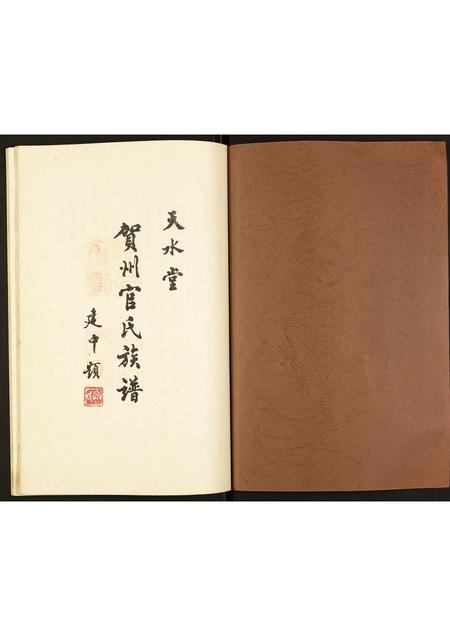 天水堂
賀州官氏族譜
建中題